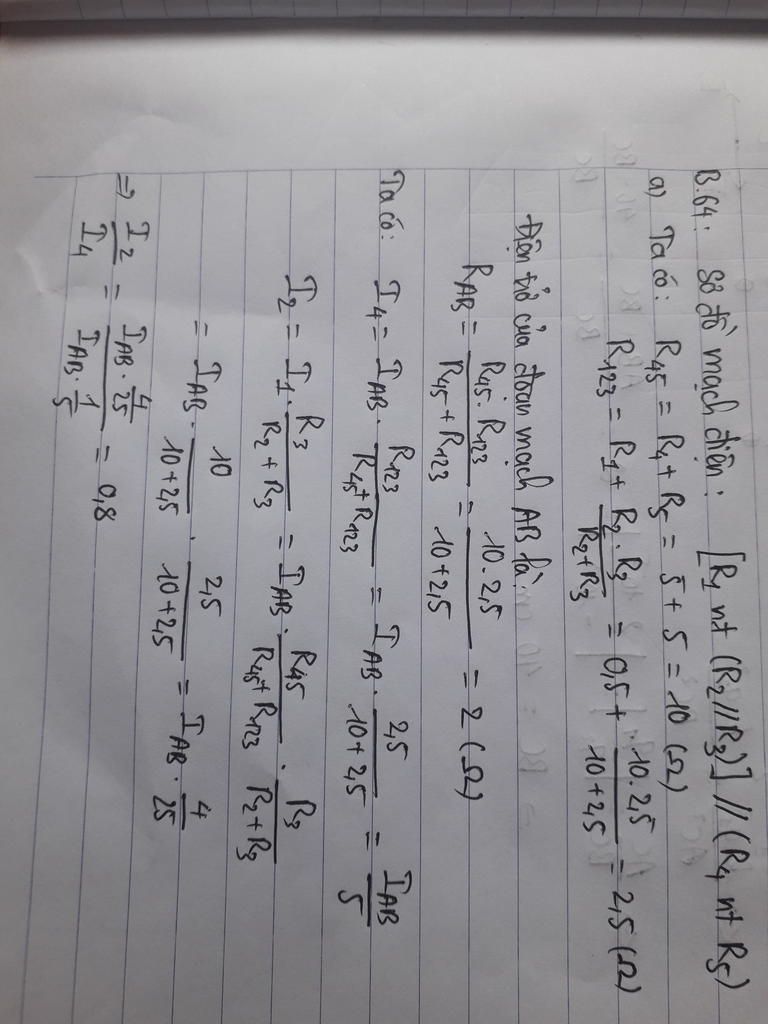 B.64: Sơ đồ mạch điện: [R1 nt (R2//R3)] // (R4 nt R5)
a) Ta có: R45 = R4 + R5 = 5 + 5 = 10 (Ω)
R123 = R1 + R2.R3/(R2+R3) = 0,5 + 10.2,5/(10+2,5) = 2,5 (Ω)
Điện trở của đoạn mạch AB là:
RAB = R45.R123/(R45+R123) = 10.2,5/(10+2,5) = 2 (Ω)
Ta có: I4 = IAB . R123/(R45+R123) = IAB . 2,5/(10+2,5) = IAB/5
I2 = I1 . R3/(R2+R3) = IAB . R45/(R45+R123) . R3/(R2+R3)
= IAB . 10/(10+2,5) . 2,5/(10+2,5) = IAB . 4/25
=> I2/I4 = (IAB . 4/25)/(IAB . 1/5) = 0,8